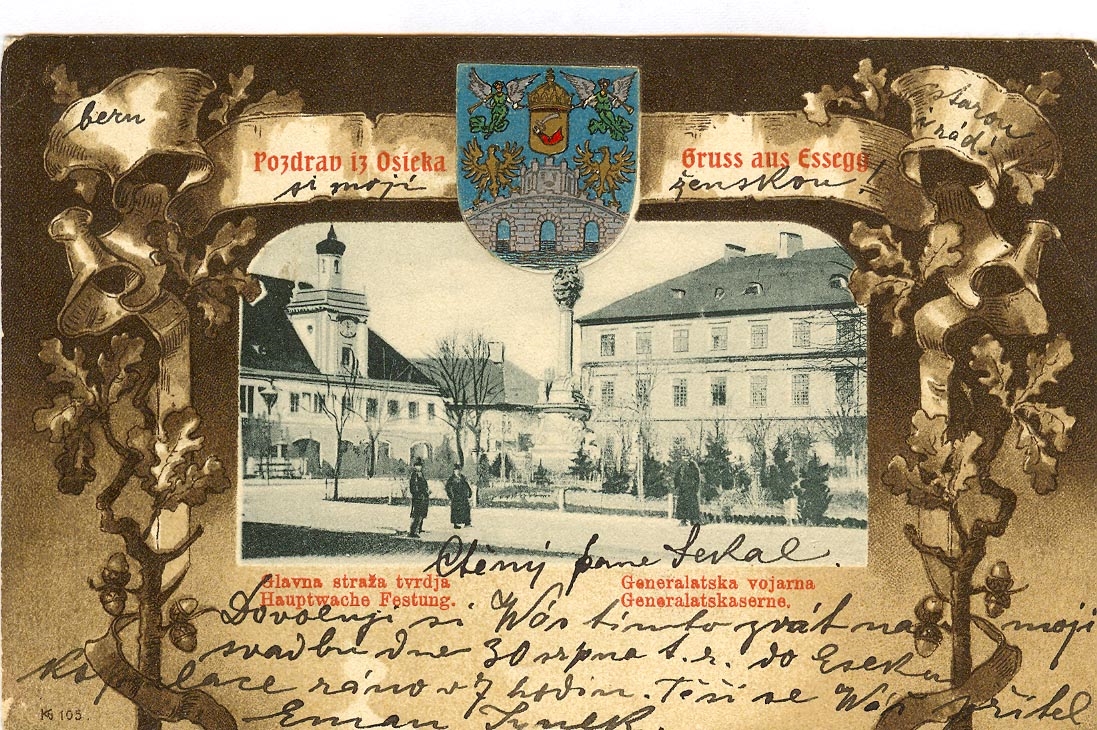 bern
starou
i rád!
Pozdrav iz Osieka
Gruss aus Essegg
si moji
ženskou!
Ctěný pane
Glavna straža tvrdja
Hauptwache Festung.
Generalatska vojarna
Generalatskaserne.
Dovoluji si Vás tímto zvát na moji
svadbu dne 30 srpna t. r. do Eseku
ráno v 7 hodin. Těší se Váš přítel
Eman
105.